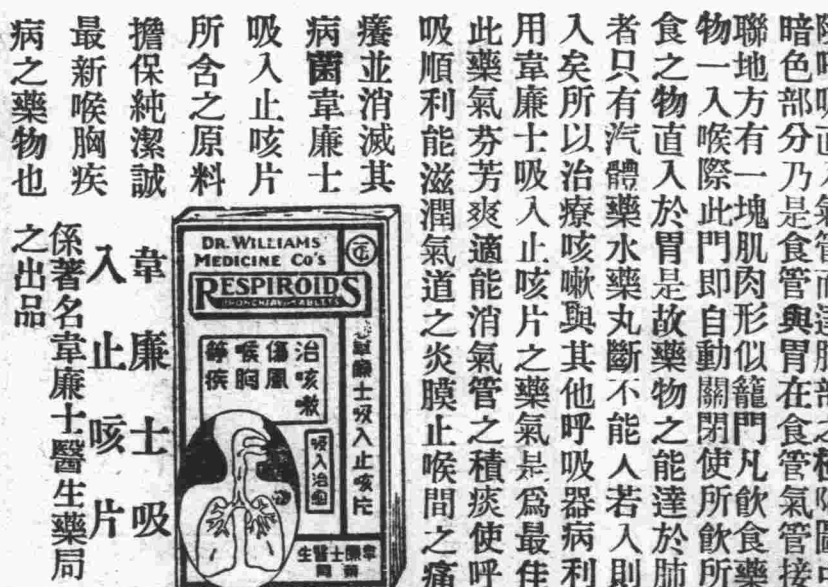 暗色部分乃是食管與胃在食管氣管接
聯地方有一塊肌肉形似籠門凡飲食藥
物一入喉際此門即自動關閉使所飲所
食之物直入於胃是故藥物之能達於肺
者只有汽體藥水藥丸斷不能入若入則
入矣所以治療咳嗽與其他呼吸器病利
用韋廉士吸入止咳片之藥氣是爲最佳
此藥氣芬芳爽適能消氣管之積痰使呼
吸順利能滋潤氣道之炎膜止喉間之痛
癢並消滅其
病菌韋廉士
吸入止咳片
所含之原料
擔保純潔誠
最新喉胸疾
病之藥物也
韋廉士吸
入止咳片
係著名韋廉士醫生藥局
之出品
DR. WILLIAMS'
MEDICINE CO'S
RESPIROIDS
BRONCHIAL TABLETS
韋廉士吸入止咳片
治咳嗽
傷風
喉胸
等疾
吸入治
韋廉士醫生
藥局